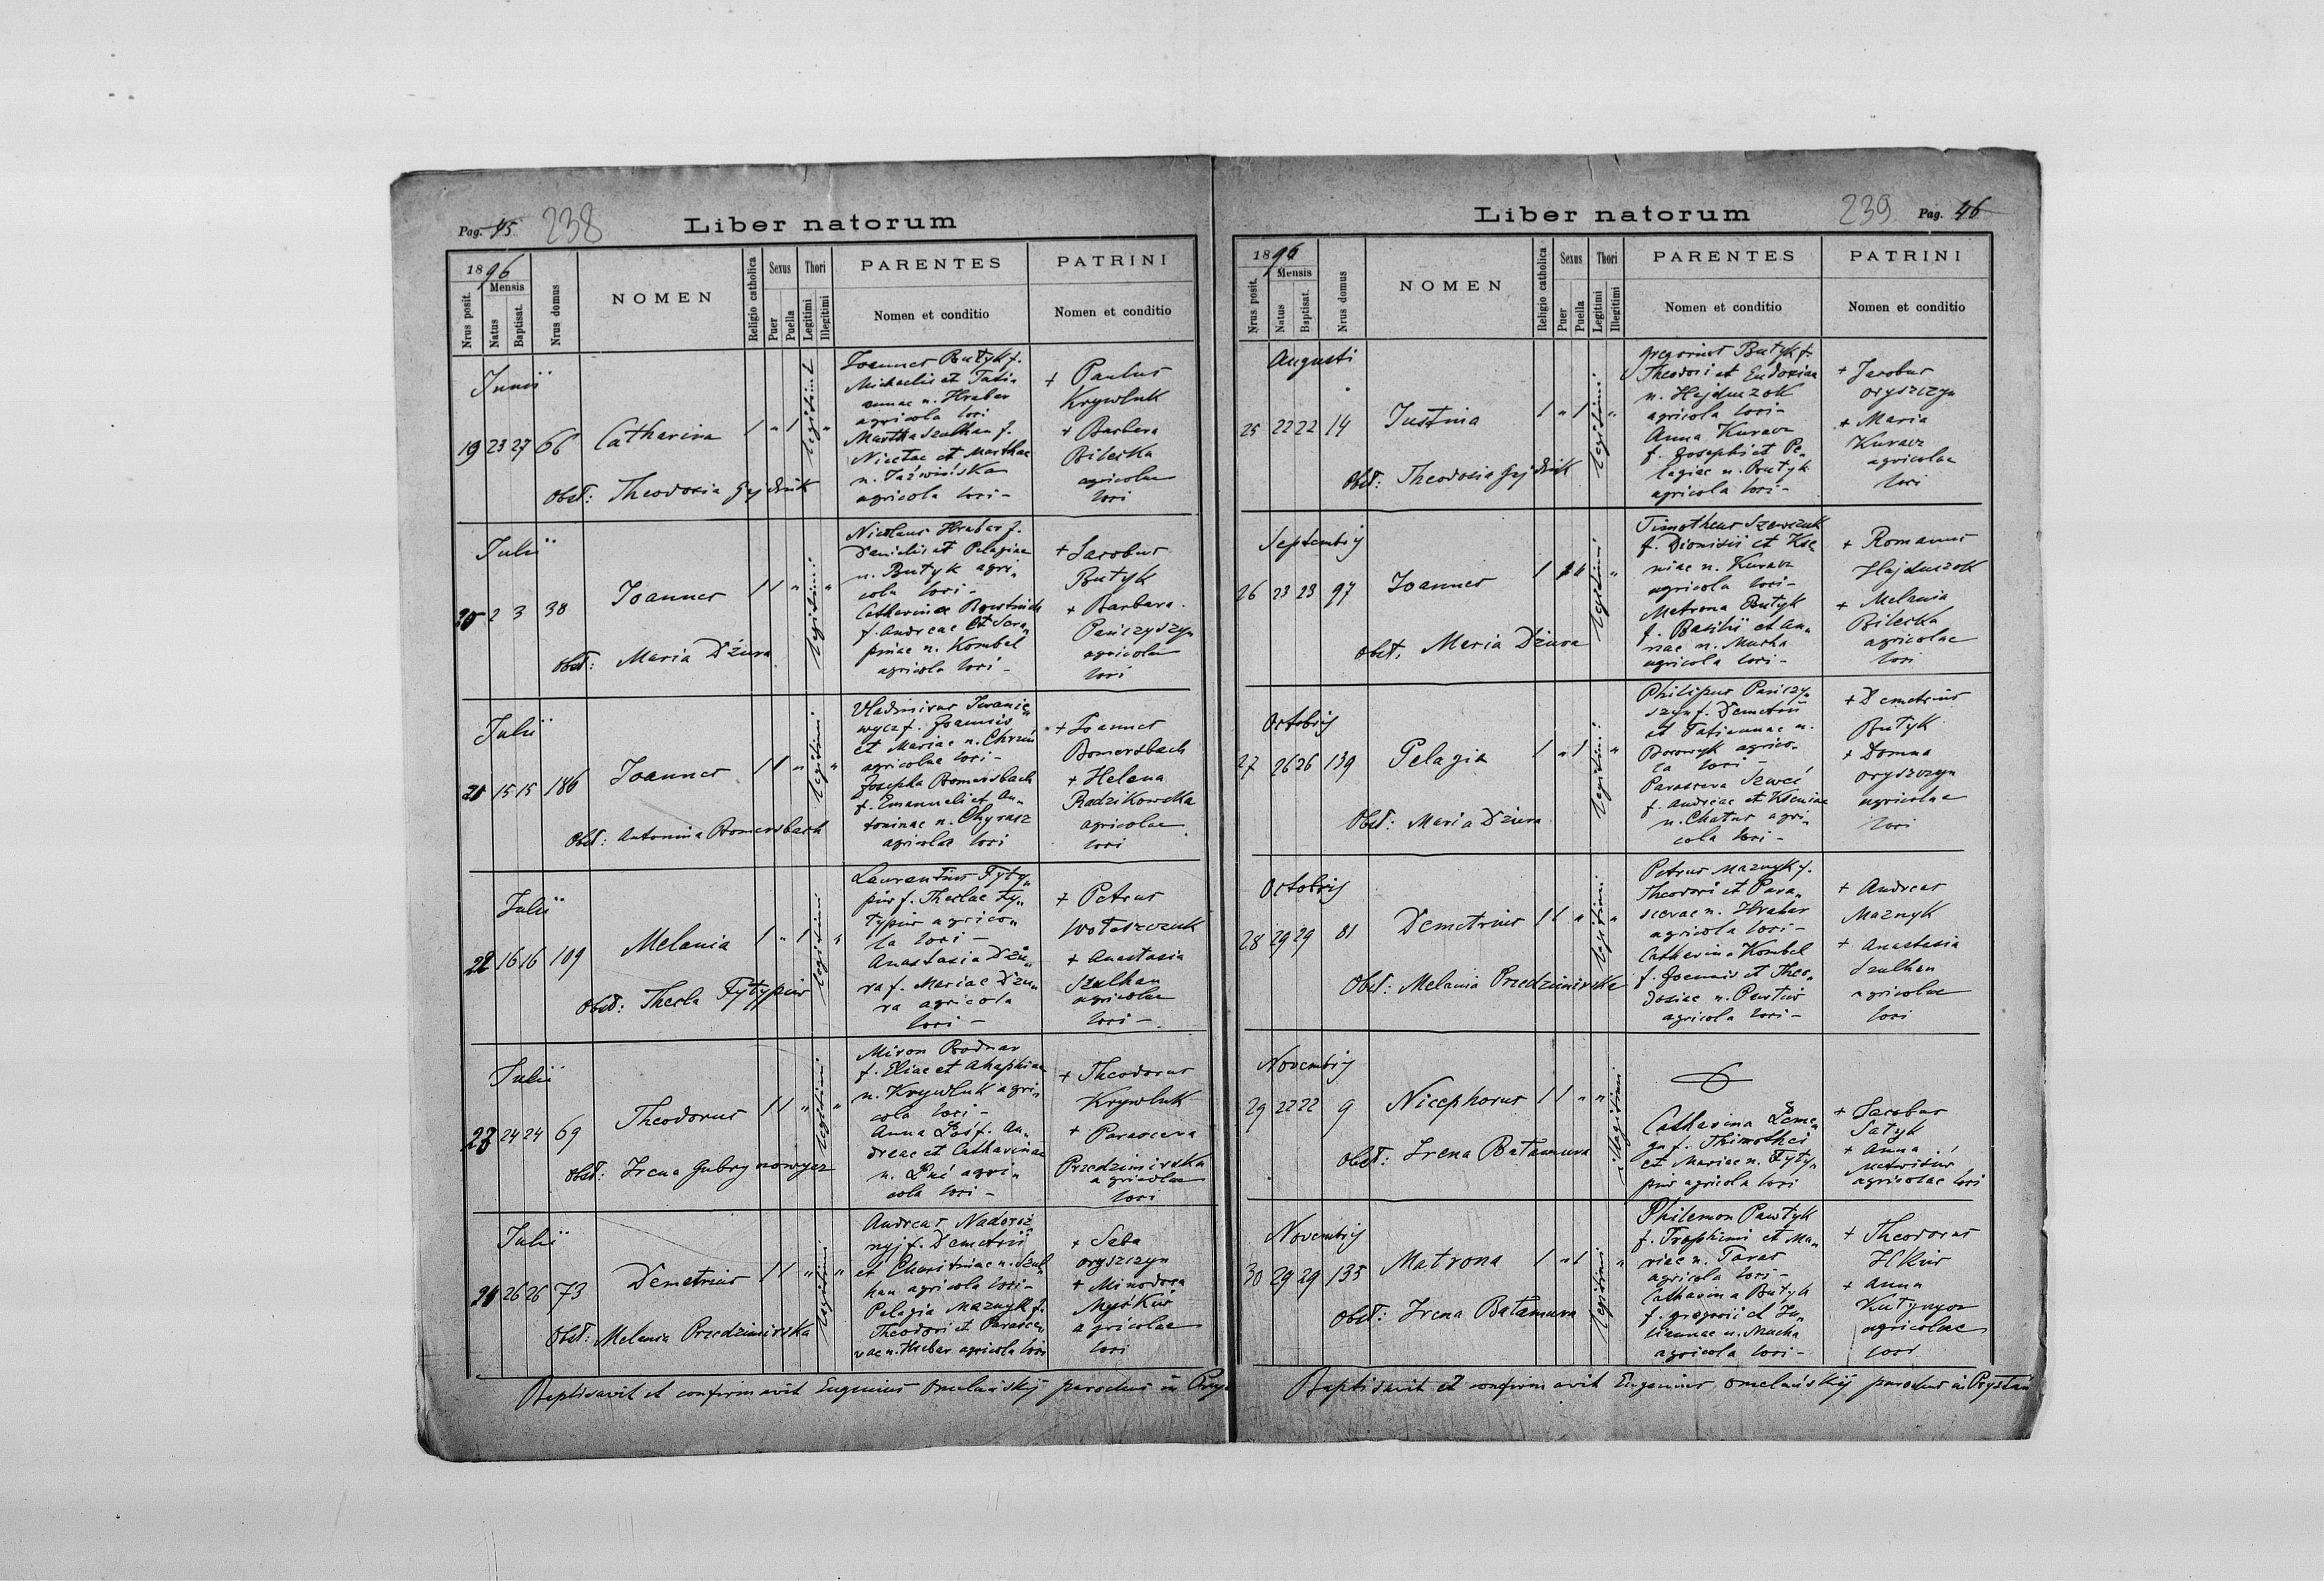 Pag. 45 238 Liber natorum
1896
Mensis
Nrus posit.
Natus
Baptisat.
Nrus domus
NOMEN
Religio catholica
Sexus
Puer
Puella
Thori
Legitimi
Illegitimi
PARENTES
Nomen et conditio
PATRINI
Nomen et conditio
Junii
19 23 27 66 Catharina 1 „ 1 legitimi „
Obst: Theodosia Gejdzik
Joannes Butyk f.
Michaelis et Tati„
annae n. Hrabar
agricola loci
Martha Szulhan f.
Nicetae et Marthae
n. Jaźwińska
agricola loci –
+ Paulus
Krywluk
+ Barbara
Bilecka
agricolae
loci
Julii
20 2 3 38 Joannes 1 1 „ legitimi „
Obst: Maria Dżura
Nicolaus Hrabar f.
Danielis et Pelagiae
n. Butyk agri„
cola loci –
Catharina
f. Andreae et
n. Kombel
agricola loci –
+ Jacobus
Butyk
+ Barbara
Pańczyszyn
agricolae
loci
Julii
21 15 15 186 Joannes 1 1 „ legitimi „
Obst: Antonina Bomersbach
Vladimirus Iwanie„
wycz f. Joannis
et Mariae n.
agricolae loci –
Josepha Bomersbach
f. Emanueli et An„
toninae n. Chyrasz
agricolae loci
+ Joannes
Bomersbach
+ Helena
Radzikowska
agricolae
loci
Julii
22 16 16 109 Melania 1 „ 1 legitimi „
Obst: Thecla Tytypiw
Laurentius Tyty„
piw f. Theclae Ty„
typiw agrico„
la loci –
Anastasia Dżu„
ra f. Mariae Dżu„
ra agricola
loci –
+ Petrus
Wołoszczuk
+ Anastasia
Szulhan
agricolae
loci –
Julii
23 24 24 69 Theodorus 1 1 „ legitimi „
Obst: Irena Gubrynowycz
Miron Bodnar
f. Eliae et Ahaphiae
n. Krywluk agri„
cola loci –
Anna f. An„
dreae et Catharinae
n. agri„
cola loci –
+ Theodorus
Krywluk
+ Parasceva
Przedzimirska
agricolae
loci
Julii
24 26 26 73 Demetrius 1 1 „ legitimi „
Obst: Melania Przedzimirska
Andreas Nadoroż„
nyj f. Demetrii
et Charitniae n. Szul„
han agricola loci –
Pelagia Maznyk f.
Theodori et Parasce„
vae n. Hrabar agricola loci
+ Saba
Oryszczyn
+ Minodora
Myśkiw
agricolae
loci
Baptisavit et confirmavit Eugenius Omelańskij parochus in
Liber natorum 239 Pag. 46
1896
Mensis
Nrus posit.
Natus
Baptisat.
Nrus domus
NOMEN
Religio catholica
Sexus
Puer
Puella
Thori
Legitimi
Illegitimi
PARENTES
Nomen et conditio
PATRINI
Nomen et conditio
Augusti
25 22 22 14 Justina 1 „ 1 legitimi „
Obst: Theodosia Gejdzik
Gregorius Butyk f.
Theodori et Eudoxiae
n. Hajduczok
agricola loci –
Anna Kuracz
f. Josephi et Pe„
lagiae n. Butyk
agricola loci –
+ Jacobus
Oryszczyn
+ Maria
Kuracz
agricolae
loci
Septembris
26 23 23 97 Joannes legitimi „
Obst: Maria Dżura
Timotheus Szewczuk
f. Dionisii et Kse„
niae n. Kuracz
agricola loci –
Matrona Butyk
f. Basilii et An„
nae n. Mucha
agricola loci –
+ Romanus
Hajduczok
+ Melania
Bilecka
agricolae
loci
Octobris
27 26 26 139 Pelagia 1 „ 1 legitimi „
Obst: Maria Dżura
Philipus Pańczy„
szyn f. Demetrii
et Tatiannae n.
Borowyk agrico„
la loci –
Parasceva Szweć
f. Andreae et Kseniae
n. Chatus agri„
cola loci –
+ Demetrius
Butyk
+ Domna
Oryszczyn
agricolae
loci
Octobris
28 29 29 81 Demetrius 1 1 „ legitimi „
Obst: Melania Przedzimirska
Petrus Maznyk f.
Theodori et Para„
scevae n. Hrabar
agricola loci –
Catharina Kombel
f. Joannis et Theo„
dosiae n.
agricola loci –
+ Andreas
Maznyk
+ Anastasia
Szulhan
agricolae
loci
Novembris
29 22 22 9 Nicephorus 1 1 „ „ illegitimi
Obst: Irena Bałamura
Catharina
f. Thimothei
et Mariae n. Tyty„
piw agricola loci
+ Jacobus
Satyk
+ Anna
agricolae loci
Novembris
30 29 29 135 Matrona 1 „ 1 legitimi „
Obst: Irena Bałamura
Philemon Pawlyk
f. Trophimi et Ma„
riae n. Taras
agricola loci –
Catharina Butyk
f. Gregorii et Ju„
liannae n. Mucha
agricola loci –
+ Theodorus
Ilkiw
+ Anna
agricolae
loci
Baptisavit et confirmavit Eugenius Omelańskij parochus in Prystań